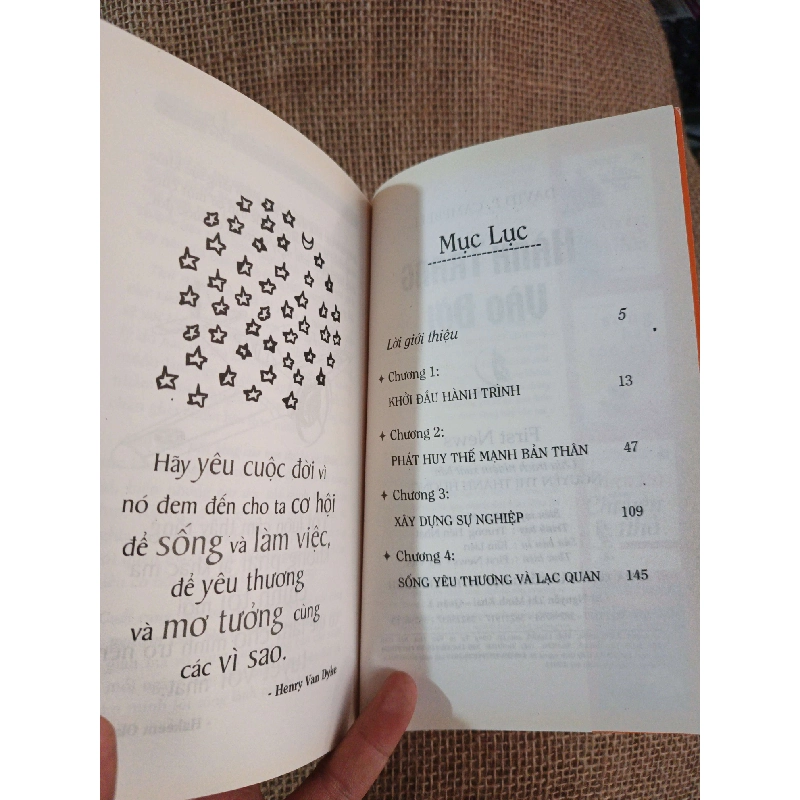 Hãy yêu cuộc đời vì
nó đem đến cho ta cơ hội
để sống và làm việc,
để yêu thương
và mơ tưởng cùng
các vì sao.
- Henry Van Dyke
Mục Lục
Lời giới thiệu 5
Chương 1:
KHỞI ĐẦU HÀNH TRÌNH 13
Chương 2:
PHÁT HUY THẾ MẠNH BẢN THÂN 47
Chương 3:
XÂY DỰNG SỰ NGHIỆP 109
Chương 4:
SỐNG YÊU THƯƠNG VÀ LẠC QUAN 145